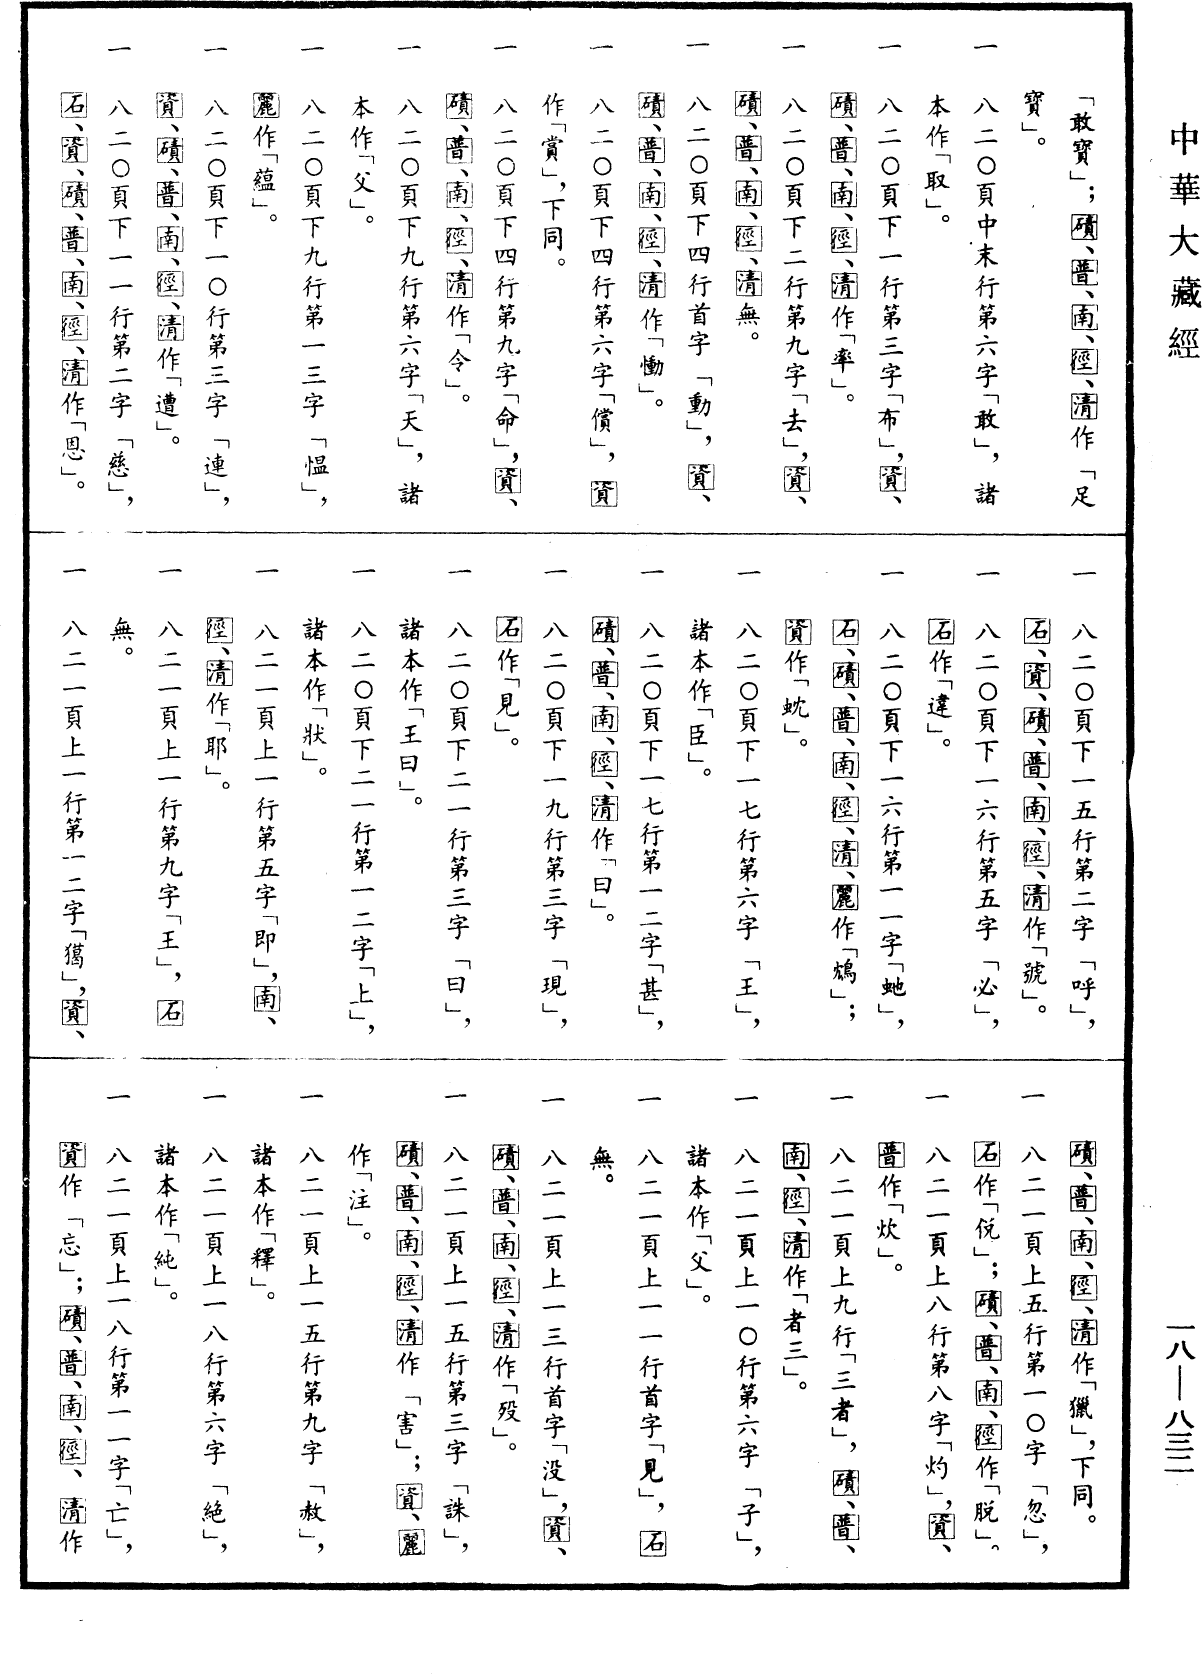 中華大藏經
「敢寶」；磧、普、南、徑、清作「足
寶」。
一 八二〇頁中末行第六字「敢」，諸
本作「取」。
一 八二〇頁下一行第三字「布」，資、
磧、普、南、徑、清作「率」。
一 八二〇頁下二行第九字「去」，資、
磧、普、南、徑、清無。
一 八二〇頁下四行首字「動」，資、
磧、普、南、徑、清作「慟」。
一 八二〇頁下四行第六字「償」，資
作「賞」，下同。
一 八二〇頁下四行第九字「命」，資、
磧、普、南、徑、清作「令」。
一 八二〇頁下九行第六字「天」，諸
本作「父」。
一 八二〇頁下九行第一三字「愠」，
麗作「蘊」。
一 八二〇頁下一〇行第三字「連」，
資、磧、普、南、徑、清作「遭」。
一 八二〇頁下一一行第二字「慈」，
石、資、磧、普、南、徑、清作「恩」。
一 八二〇頁下一五行第二字「呼」，
石、資、磧、普、南、徑、清作「號」。
一 八二〇頁下一六行第五字「必」，
石作「違」。
一 八二〇頁下一六行第一一字「虵」，
石、磧、普、南、徑、清、麗作「鴆」；
資作「蚖」。
一 八二〇頁下一七行第六字「王」，
諸本作「臣」。
一 八二〇頁下一七行第一二字「甚」，
磧、普、南、徑、清作「曰」。
一 八二〇頁下一九行第三字「現」，
石作「見」。
一 八二〇頁下二一行第三字「曰」，
諸本作「王曰」。
一 八二〇頁下二一行第一二字「上」，
諸本作「狀」。
一 八二一頁上一行第五字「即」，南、
徑、清作「耶」。
一 八二一頁上一行第九字「王」，石
無。
一 八二一頁上一行第一二字「獦」，資、
磧、普、南、徑、清作「獵」，下同。
一 八二一頁上五行第一〇字「忽」，
石作「侻」；磧、普、南、徑作「脫」。
一 八二一頁上八行第八字「灼」，資、
普作「炊」。
一 八二一頁上九行「三者」，磧、普、
南、徑、清作「者三」。
一 八二一頁上一〇行第六字「子」，
諸本作「父」。
一 八二一頁上一一行首字「見」，石
無。
一 八二一頁上一三行首字「没」，資、
磧、普、南、徑、清作「歿」。
一 八二一頁上一五行第三字「誅」，
磧、普、南、徑、清作「害」；資、麗
作「注」。
一 八二一頁上一五行第九字「赦」，
諸本作「釋」。
一 八二一頁上一八行第六字「絶」，
諸本作「純」。
一 八二一頁上一八行第一一字「亡」，
資作「忘」；磧、普、南、徑、清作
一八—八三二